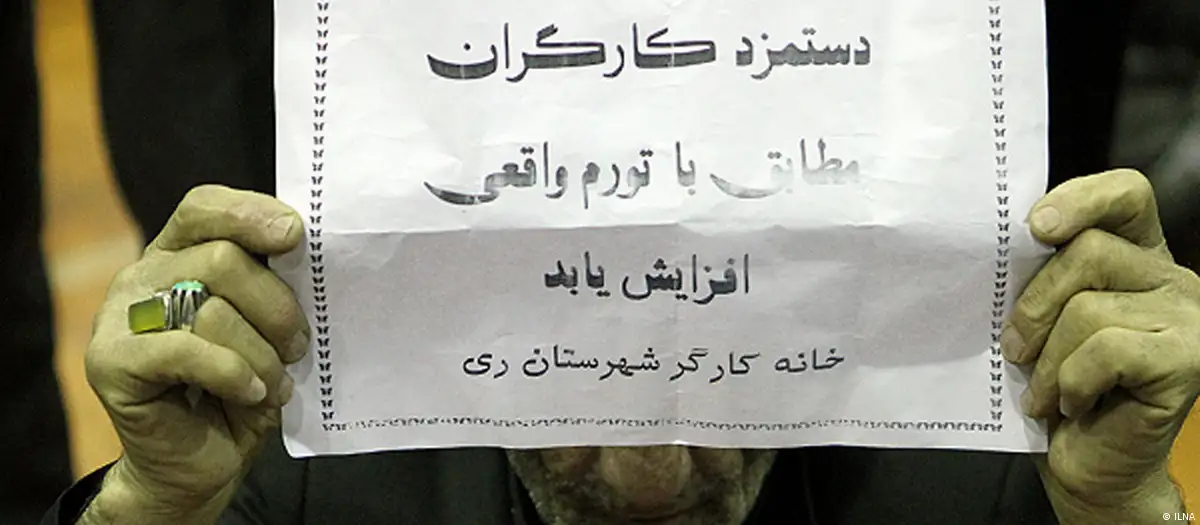 دستمزد کارگران
مطابق با تورم واقعی
افزایش یابد
خانه کارگر شهرستان ری
© ILNA